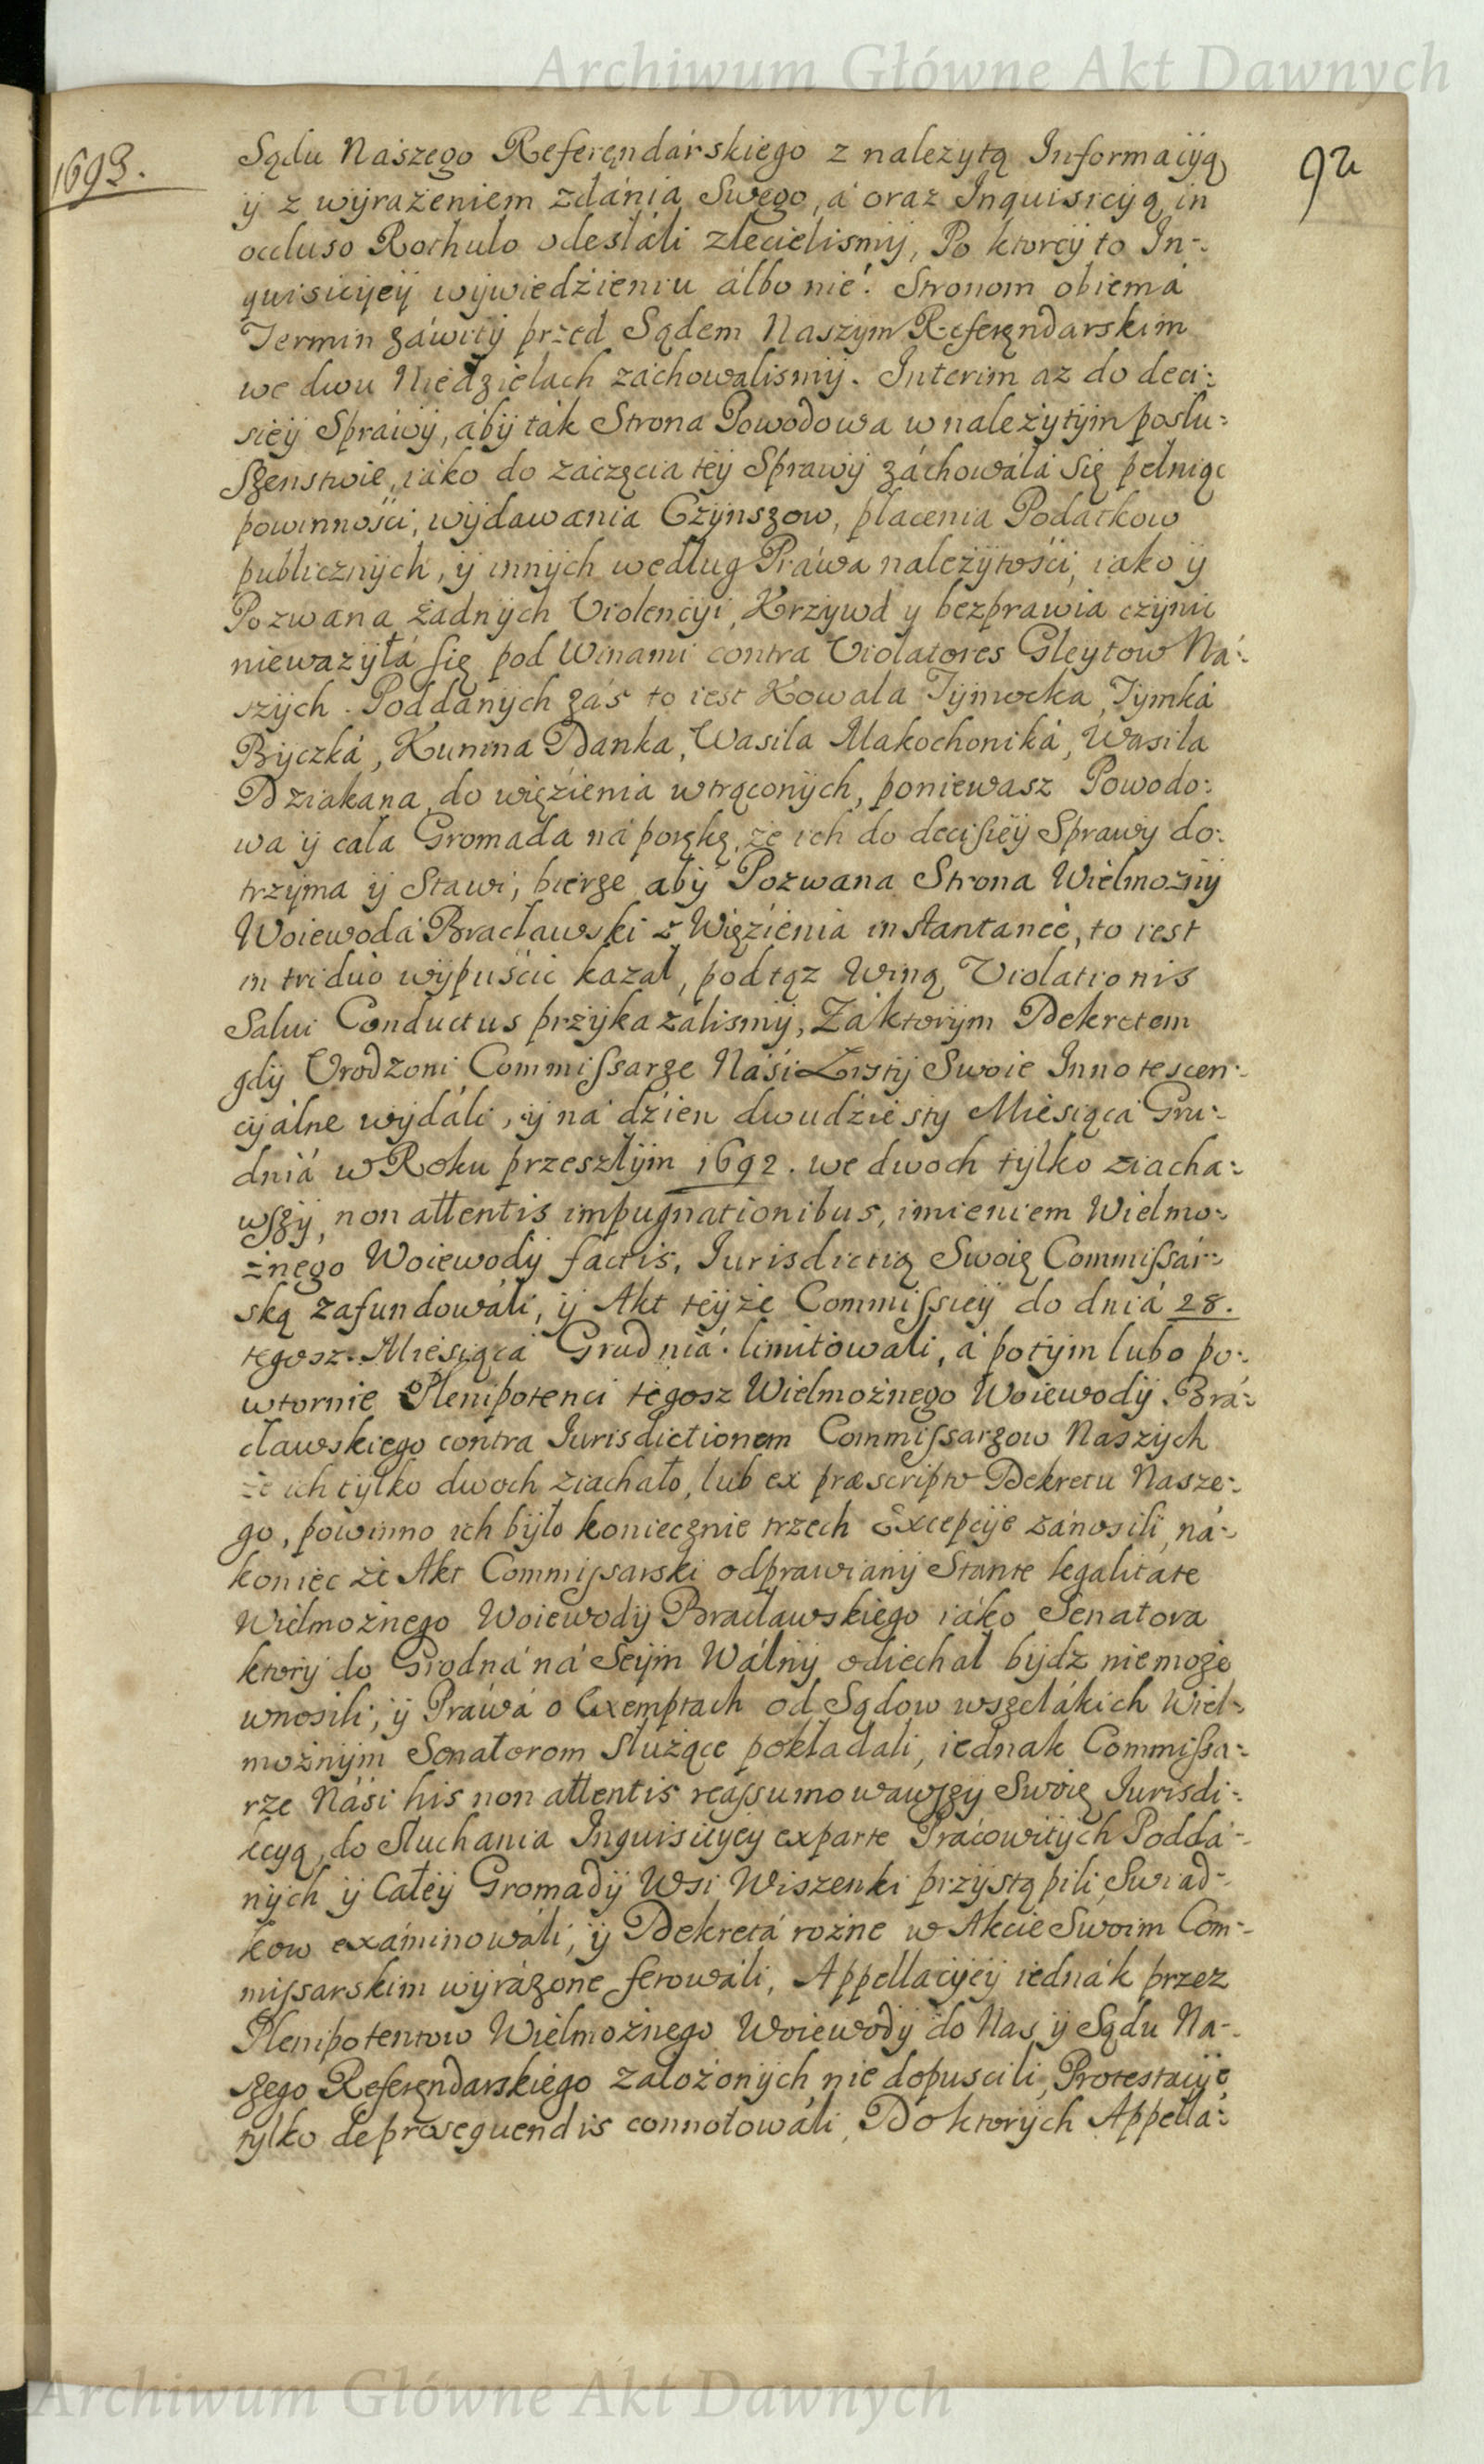 Archiwum Główne Akt Dawnych
1693.
92
Sądu Naszego Referęndárskiego z nalezytą Informacyą
ÿ z wÿrażeniem zdánia Swego, á oraz Inquisicÿą in
occluso Rothulo odesłáli zlecielismÿ, Po ktorcÿ to In-:
quisicÿeÿ wÿwiedźieniu álbo nié! Stronom obiemá
Termin záwitÿ przed Sądem Naszÿm Referęndarskim
we dwu Niedzielach záchowalismÿ. Interim az do deci:
sieÿ Spráwÿ, ábÿ ták Strona Powodowa w należytÿm posłu:
szenstwie, iáko do zaczęcia teÿ Sprawÿ záchowáłá Się pełniąc
powinnośći, wÿdawania Czÿnszow, płacenia Podatkow
publicznÿch, ÿ innÿch według Práwa należÿtośći, iako ÿ
Pozwana żadnÿch Violencÿi, Krzÿwd y bezprawia czÿnic
niewazÿłá się pod Winami contra Violatores Gleytow Ná:
szÿch. Poddánÿch zás to iest Kowala Tÿmocka, Tÿmká
Bÿczká, Kunina Danka, Wasila Makochoniká, Wasila
Dziakana, do więźienia wtrąconÿch, poniewasz Powodo:
wa ÿ cała Gromada ná porękę, że ich do decisieÿ Sprawy do:
trzÿma ÿ Stawi, bierze abÿ Pozwana Strona Wielmoznÿ
Woiewodá Bracławski z Więźienia instantaneé, to iest
in triduo wÿpuśćic kazał, pod tąz Winą Violationis
Salui Conductus przÿkazálismÿ, Zá ktorÿm Dekretem
gdÿ Vrodzoni Commissarze Náśi Listÿ Swoie Innotescen-:
cÿálne wÿdáli, ÿ ná dźien dwudźiestÿ Miesiącá Gru-:
dniá w Roku przeszłÿm 1692. we dwoch tÿlko ziacha:
wszÿ, non attentis impugnationibus, imieniem Wielmo:
żnego Woiewodÿ factis, Iurisdictią Swoię Commissár:
ską zafundowáli, ÿ Akt teÿże Commissieÿ do dniá 28.
tegosz Miesiącá Grudniá limitowali, á potÿm lubo po:
wtornie Plenipotenci tégosz Wielmożnego Woiewodÿ Brá:
cławskiego contra Iurisdictionem Commissarzow Naszÿch
że ich tÿlko dwoch ziachało, lub ex præscripto Dekretu Nasze:
go, powinno ich bÿło koniecznie trzech Excepcÿe zánosili, ná:
koniec że Akt Commissarski odprawianÿ Stante legalitate
Wielmożnego Woiewodÿ Bracławskiego iáko Senatora
ktorÿ do Grodná ná Seÿm Wálnÿ odiechał bÿdz niemoże
wnosili, ÿ Práwá o Exemptach od Sądow wszelákich Wiel:
możnÿm Senatorom służące pokładali, iednak Commissa:
rze Náśi his non attentis reassumowawszÿ Swoię Iurisdi:
kcyą, do Słuchania Inquisicÿey ex parte Prácowitÿch Poddá:
nÿch ÿ Całeÿ Gromadÿ Wsi Wiszenki przÿstąpili, Swiad:
kow exáminowáli, ÿ Dekretá rożne w Akcie Swoim Com:
missarskim wÿrázone ferowáli, Appellacÿeÿ iednák przez
Plenipotentow Wielmożnego Woiewodÿ do Nas ÿ Sądu Na:
szego Referęndarskiego założonÿch nie dopuscili, Protestacÿe
tylko de prosequendis connotowáli, Do ktorÿch Appellá:
Archiwum Główne Akt Dawnych